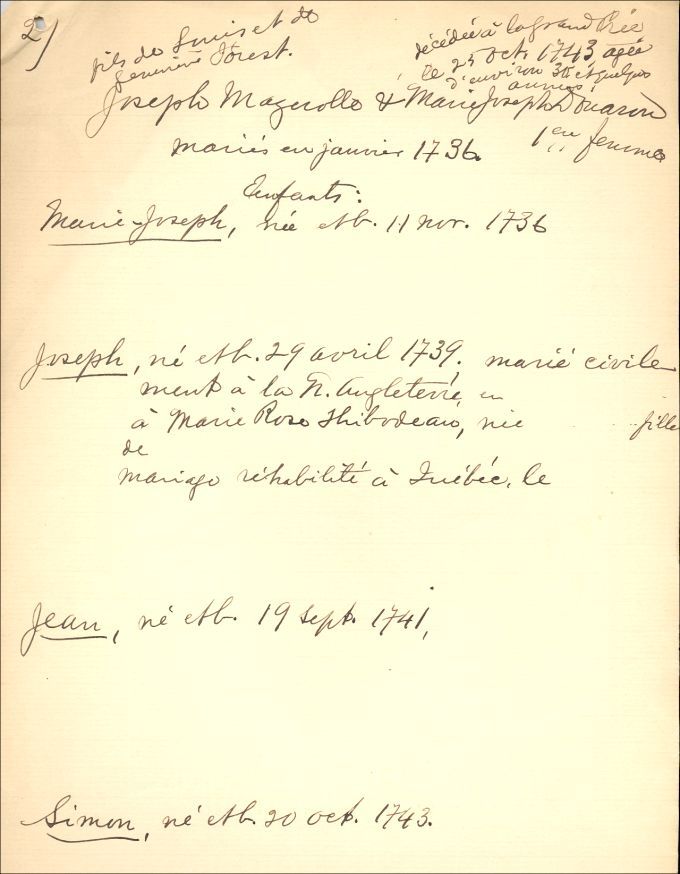 2/
fils de Louis et de
Geneviève Forest.
décédée à la grand Prée
le 25 oct. 1743, agée
d'environ 30 et quelques
années
Joseph Mazerolle & Marie Joseph Douaron
mariés en janvier 1736. 1ère femme
Enfants:
Marie-Joseph, née et b. 11 nov. 1736
Joseph, né et b. 29 avril 1739, marié civile
ment à la N. Angleterre, en
à Marie Rose Thibodeau, née fille
de
mariage réhabilité à Québec, le
Jean, né et b. 19 sept. 1741,
Simon, né et b. 20 oct. 1743.